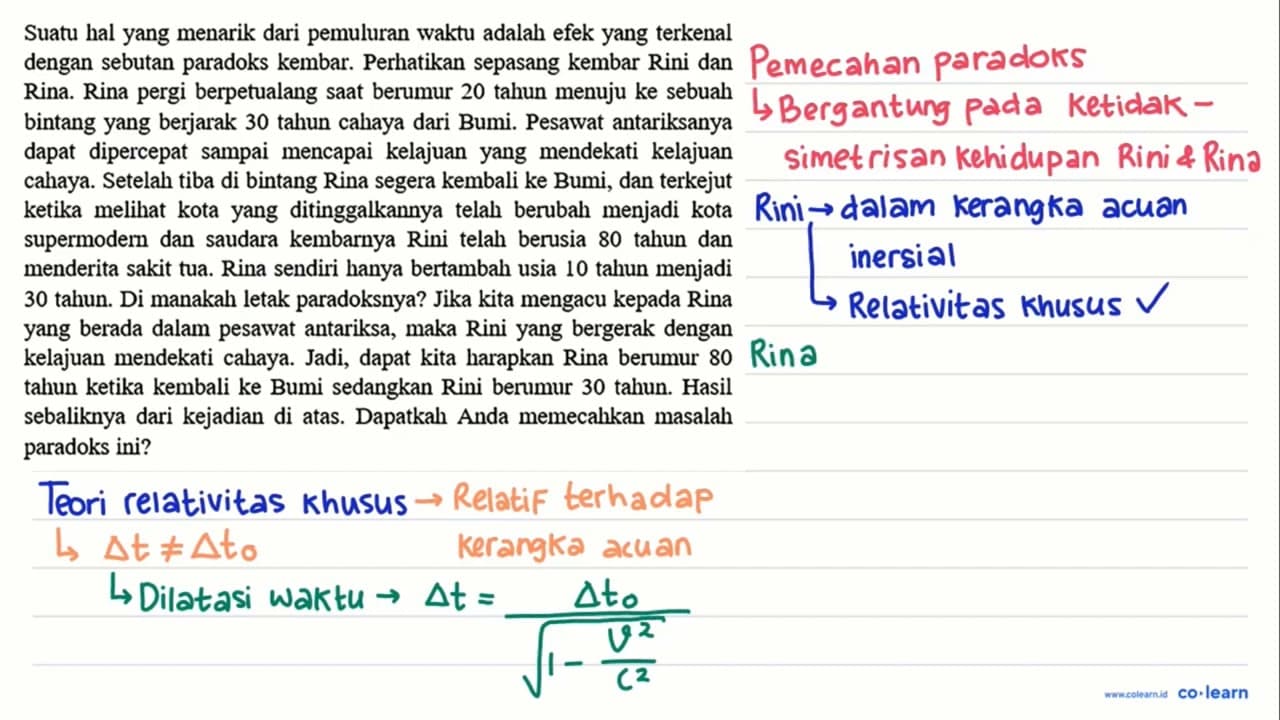 Suatu hal yang menarik dari pemuluran waktu adalah efek yang terkenal
dengan sebutan paradoks kembar. Perhatikan sepasang kembar Rini dan
Rina. Rina pergi berpetualang saat berumur 20 tahun menuju ke sebuah
bintang yang berjarak 30 tahun cahaya dari Bumi. Pesawat antariksanya
dapat dipercepat sampai mencapai kelajuan yang mendekati kelajuan
cahaya. Setelah tiba di bintang Rina segera kembali ke Bumi, dan terkejut
ketika melihat kota yang ditinggalkannya telah berubah menjadi kota
supermodern dan saudara kembarnya Rini telah berusia 80 tahun dan
menderita sakit tua. Rina sendiri hanya bertambah usia 10 tahun menjadi
30 tahun. Di manakah letak paradoksnya? Jika kita mengacu kepada Rina
yang berada dalam pesawat antariksa, maka Rini yang bergerak dengan
kelajuan mendekati cahaya. Jadi, dapat kita harapkan Rina berumur 80
tahun ketika kembali ke Bumi sedangkan Rini berumur 30 tahun. Hasil
sebaliknya dari kejadian di atas. Dapatkah Anda memecahkan masalah
paradoks ini?
Pemecahan paradoks
↳ Bergantung pada ketidak-
simetrisan kehidupan Rini & Rina
Rini → dalam kerangka acuan
inersial
↳ Relativitas khusus ✓
Rina
Teori relativitas khusus → Relatif terhadap
kerangka acuan
↳ Δt ≠ Δt₀
↳ Dilatasi waktu → Δt = Δt₀ / √(1 - v²/c²)
www.colearn.id co·learn